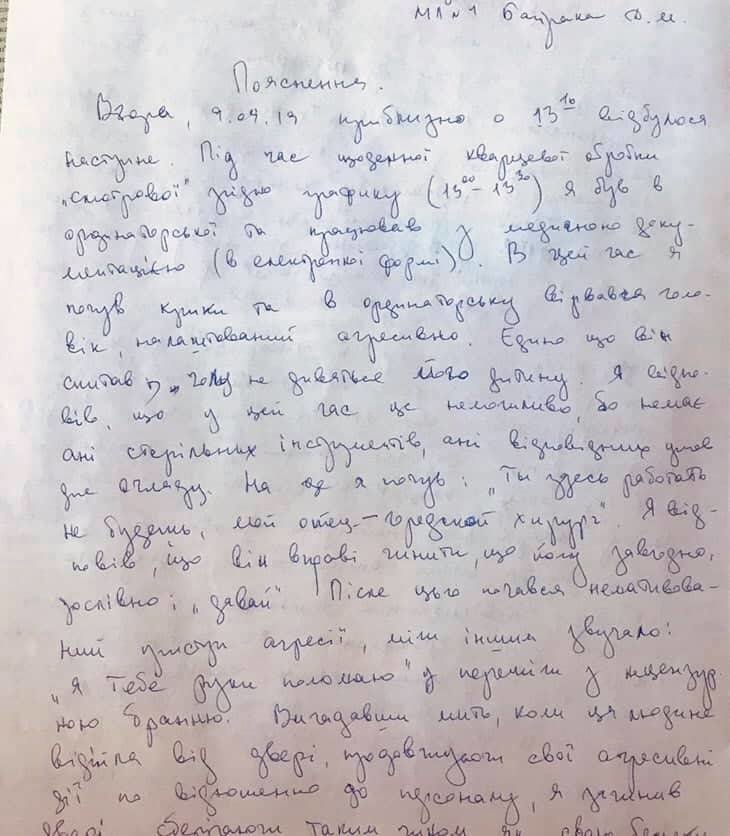 МЛ №1 Байрака Д.М.
Пояснення.
Вчора, 9.04.19 приблизно о 13¹⁰ відбулося
наступне. Під час щоденної кварцевої обробки
„смотрової" згідно графіку (13⁰⁰ - 13³⁰) я був в
ординаторської та працював з медичною доку-
ментацією (в електронній формі). В цей час я
почув крики та в ординаторську вірвався чоло-
вік, налаштований агресивно. Едино що він
спитав „чому не дивяться його дитину. Я відпо-
вів, що у цей час це неможливо, бо немає
ані стерільних інструментів, ані відповідних умов
для огляду. На це я почув: „Ты здесь работать
не будешь, мой отец - городской хирург". Я від-
повів, що він вправі чинити, що йому завгодно,
дослівно: „давай" Після цього почався немативова-
ний приступ агресії, між іншим звучало:
„Я тебе руки поломаю" у переміж з нцензур
ною бранню. Вигадавши мить, коли ця людина
відійшла від двері, продовжуючи свої агресивні
дії по відношенню до персоналу, я зачинив
двері, зберігаючи таким чином як свою